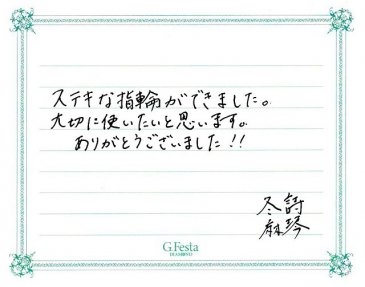 ステキな指輪ができました。
大切に使いたいと思います。
ありがとうございました!!
冬詩
麻琴
G.Festa
DIAMOND